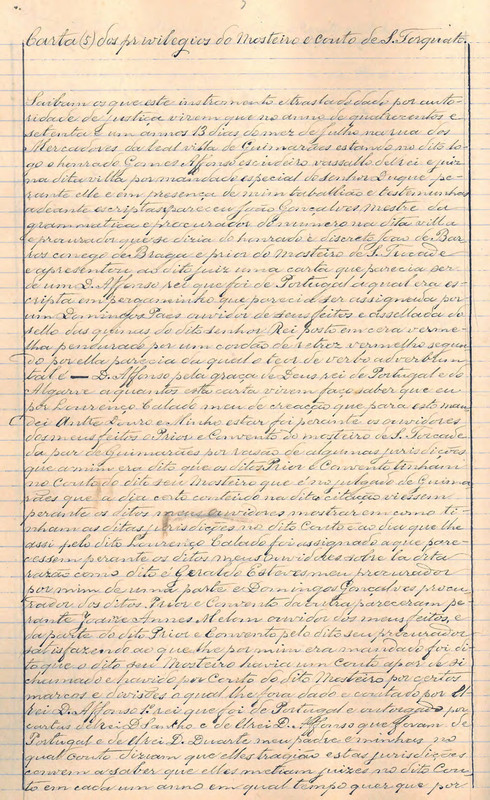 Carta(s) dos privilegios do Mosteiro e couto de S. Torquato.
Saibam os que este instromento e traslado dado por auto-
ridade de justiça virem que no anno de quatrocentos e
setenta e um annos 13 dias do mez de julho na rua dos
Mercadores da leal villa de Guimarães estando no dito lo-
go o honrado Gomes Affonso escudeiro vassallo del rei e juiz
na dita villa por mandado especial do senhor Duque pe-
rante elle e em presença de mim taballião e testemunhas
adeante escriptas pareceu João Gonçalves, Mestre da
grammatica e procurador do numero na dita villa
e procurador que se dizia do honrado e discreto Joao de Bar-
ros conego de Braga e prior do Mosteiro de S. Tucade
e apresentou ao dito juiz uma carta que parecia ser
de um D. Affonso rei que foi de Portugal a qual era es-
cripta em pergaminho que parecia ser assignada por
um Domingos Paes ouvidor de seus feitos e assellada do
sello das quinas do dito senhor Rei posto em cera verme-
lha pendurado por um cordão de retroz vermelho segun-
do por ella parecia da qual o teor de verbo adverbum
tal é — D. Affonso pela graça de Deus rei de Portugal e do
Algarve a quantos esta carta virem faço saber que eu
por Lourenço Calado meu de creação que para esto man-
dei Antre Douro e Minho estar foi perante os ouvidores
dos meus feitos o Prior e Convento do mosteiro de S. Torcade
da par de Guimarães por razão de algumas jurisdições
que a mim era dito que os ditos Prior e Convento tinham
no Couto do dito seu Mosteiro que é no julgado de Guima-
rães que a dia certo conteúdo na dita citação viessem
perante os ditos meus ouvidores mostrar em como ti-
nham as ditas jurisdições no dito Couto e ao dia que lhe
assi pelo dito Lourenço Calado foi assignado a que pare-
cessem perante os ditos meus Ouvidores sobre la dita
razão como dito é Geraldo Esteves meu procurador
por mim de uma parte e Domingos Gonçalves procu-
rador dos ditos Prior e Convento da outra pareceram pe-
rante Joane Annes Melom ouvidor dos meus feitos, e
da parte do dito Prior e Convento pelo dito seu procurador
satisfazendo ao que lhe por mim era mandado foi di-
to que o dito seu Mosteiro havia um Couto apar de si
chamado e havido por Couto do dito Mosteiro por certos
marcos e devisões o qual lhe fora dado e coutado por El
rei D. Affonso 1º rei que foi de Portugal e outorgado por
cartas d'el rei D. Sancho e de El rei D. Affonso que foram de
Portugal e de El rei D. Duarte meu padre e minhas no
qual Couto diziam que elles tragião estas jurisdições
convem a saber que elles metiam juizes no dito Cou-
to em cada um anno em qual tempo quer que por